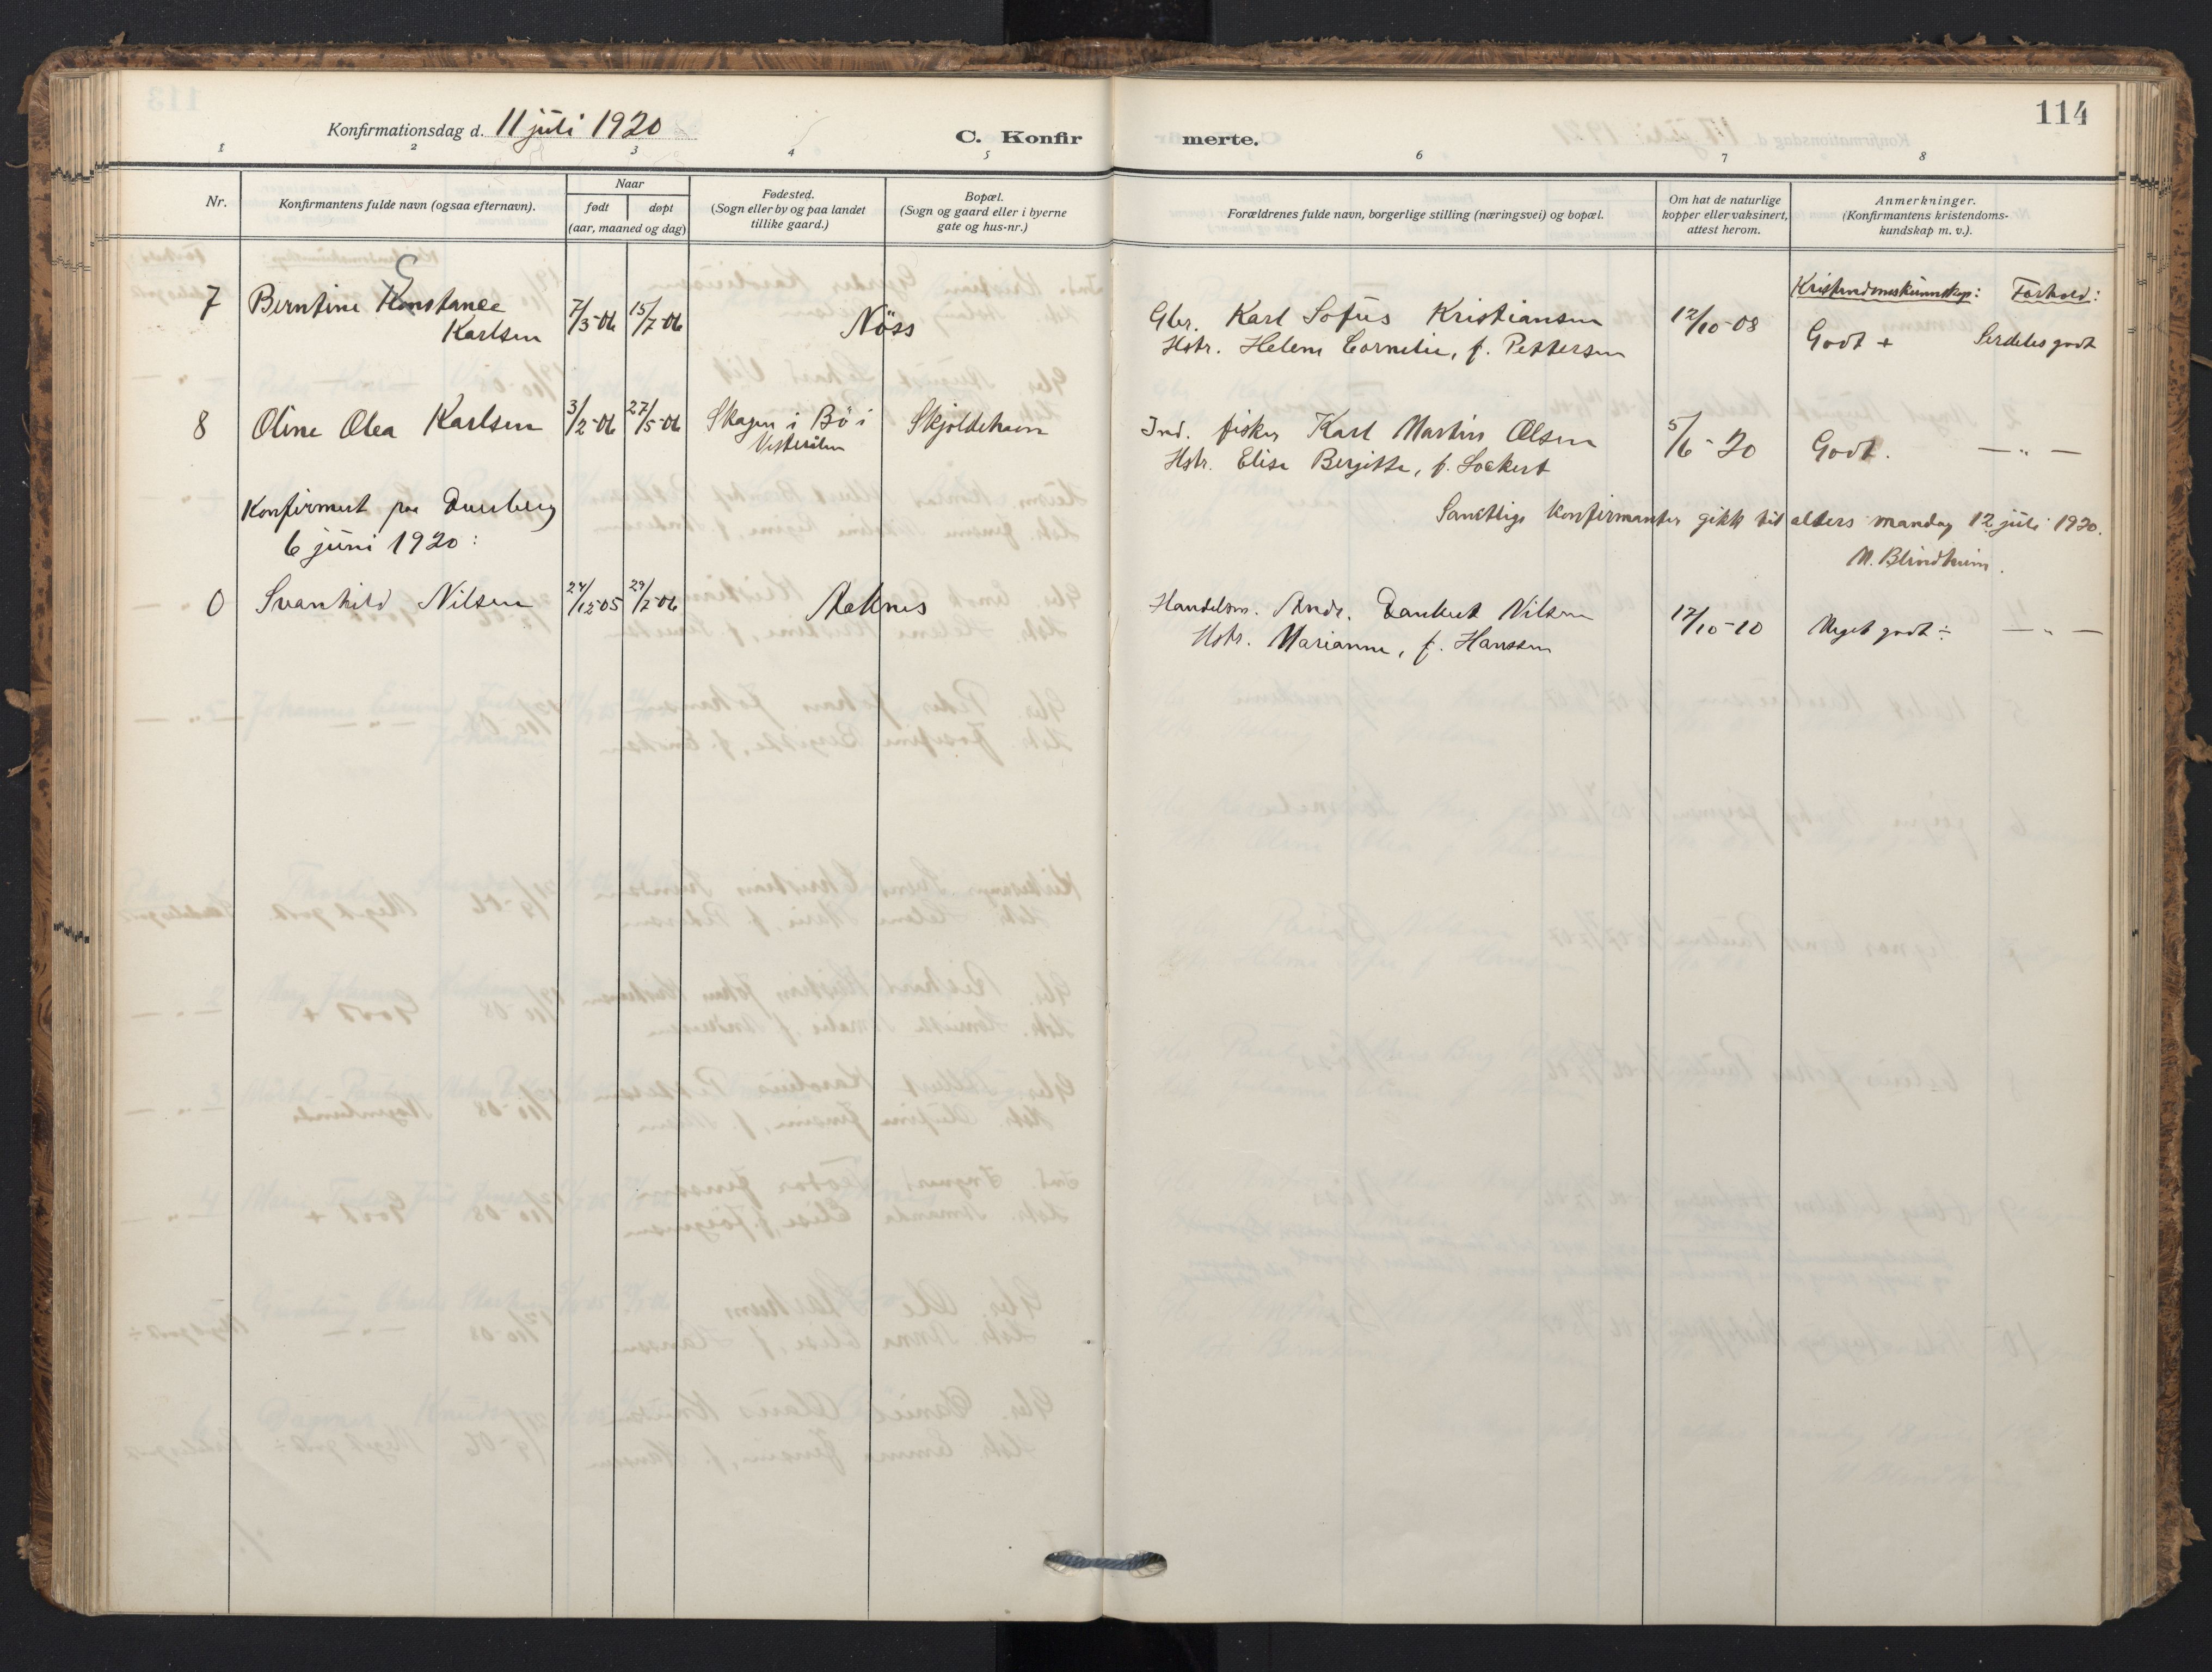 114
Konfirmationsdag d. 11 juli 1920
C. Konfirmerte.
1 2 3 4 5 6 7 8
Nr.
Konfirmantens fulde navn (ogsaa efternavn).
Naar
født døpt
(aar, maaned og dag)
Fødested.
(Sogn eller by og paa landet
tillike gaard.)
Bopæl.
(Sogn og gaard eller i byerne
gate og hus-nr.)
Forældrenes fulde navn, borgerlige stilling (næringsvei) og bopæl.
Om hat de naturlige
kopper eller vaksinert,
attest herom.
Anmerkninger.
(Konfirmantens kristendoms-
kundskap m. v.).
Kristendomskunnskap: Forhold:
7 Berntine Konstance 7/3-06 15/7-06 Nöss Gbr. Karl Sofus Kristiansen 12/10-08 Godt + Serdeles godt
C
Karlsen Hstr. Helene Cornelie, f. Pettersen
8 Oline Olea Karlsen 3/2-06 27/5-06 Skagen i Bö i Skjoldehavn Ind. fisker Karl Martin Olsen 5/6-20 Godt. — " —
Vesterålen Hstr. Elise Bergitte, f. Lockert
Konfirmert paa Dverberg
Samtlige konfirmanter gikk til alters mandag 12 juli 1920.
6 juni 1920:
M. Blindheim.
0 Svanhild Nilsen 24/12-05 29/7-06 Aaknes Handelsm. Andr. Dankert Nilsen 17/10-10 Meget godt ÷ — " —
Hstr. Marianne, f. Hanssen